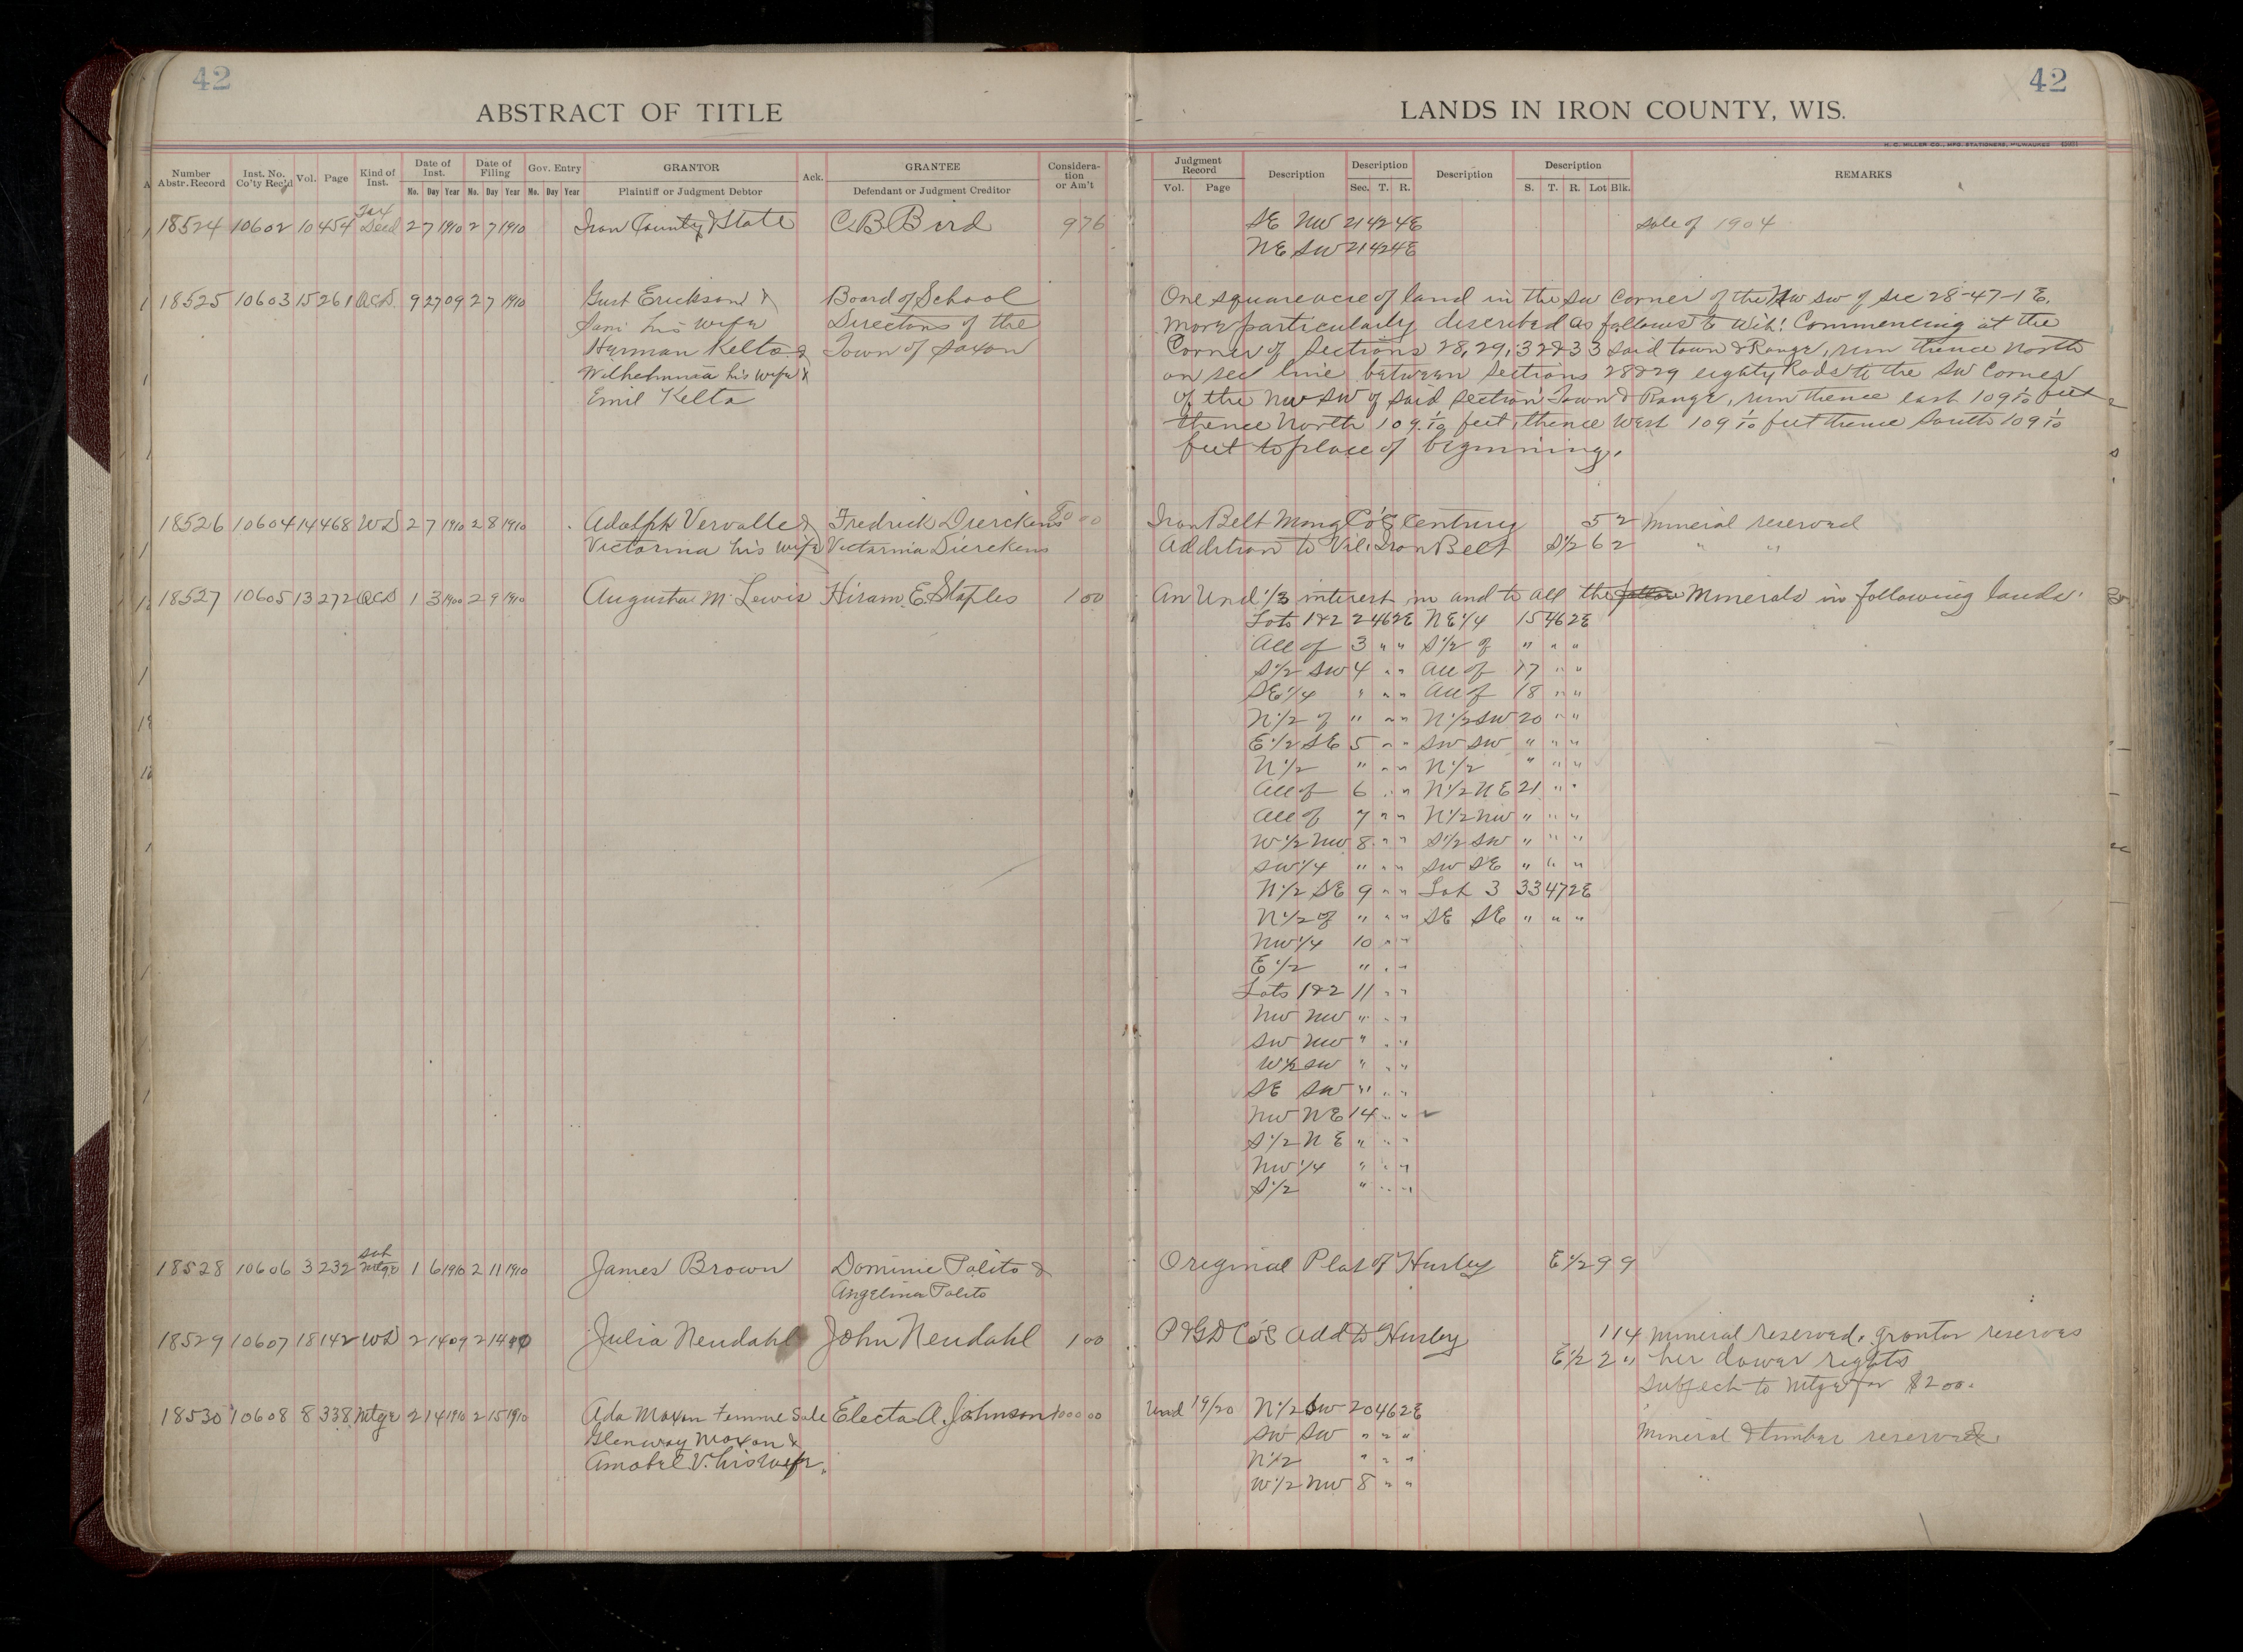 42
42
ABSTRACT OF TITLE
LANDS IN IRON COUNTY, WIS.
H. C. MILLER CO., MFG. STATIONERS, MILWAUKEE
Number Abstr. Record Inst. No. Co'ty Rec'd Vol. Page Kind of Inst. Date of Inst. Mo. Day Year Date of Filing Mo. Day Year Gov. Entry Mo. Day Year GRANTOR Plaintiff or Judgment Debtor Ack. GRANTEE Defendant or Judgment Creditor Consideration or Am't
Judgment Record Vol. Page Description Description Sec. T. R. Description Description S. T. R. Lot Blk. REMARKS
18524 10602 10 454 Tax Deed 2 7 1910 2 7 1910 Iron County & State C B Bird 9 76 SE NW 21 42 4E sale of 1904
NE SW 21 42 4E
18525 10603 15 261 QCD. 9 27 09 2 7 1910 Gust Erickson & Board of School One square acre of land in the SW corner of the NW SW of sec 28-47-1 E.
his wife Directors of the more particularly described as follows to wit: Commencing at the
Herman Kelto & Town of Saxon Corner of Sections 28, 29, 32 & 33 said town & Range, run thence North
Wilhelmina his wife & on sec line between sections 28 & 29 eighty Rods to the SW Corner
Emil Kelto of the NW SW of said section Town & Range, run thence east 109 1/10 feet
thence North 109 1/10 feet, thence West 109 1/10 feet thence South 109 1/10
feet to place of beginning.
18526 10604 14 468 WD 2 7 1910 2 8 1910 Adolph Vervalle & Fredrick Dierckens 80 00 Iron Belt Mong Co's Century 5 2 Mineral reserved
Victorina his wife Victorina Dierckens Addition to Vil. Iron Belt S 1/2 6 2 " "
18527 10605 13 272 QCD 1 3 1900 2 9 1910 Augusta M. Lewis Hiram E. Staples 1 00 An Und. 1/3 interest in and to all the Minerals in following lands.
Lots 1 & 2 2 46 2E NE 1/4 15 46 2E
All of 3 " " S 1/2 of " " "
S 1/2 SW 4 " " All of 17 " "
SE 1/4 " " " All of 18 " "
N 1/2 of " " " N 1/2 SW 20 " "
E 1/2 SE 5 " " SW SW " " "
N 1/2 " " " N 1/2 " " "
All of 6 " " N 1/2 NE 21 " "
All of 7 " " N 1/2 NW " " "
W 1/2 NW 8 " " S 1/2 SW " " "
SW 1/4 " " " SW SE " " "
N 1/2 SE 9 " " Lot 3 33 47 2E
N 1/2 of " " " SE SE " " "
NW 1/4 10 " "
E 1/2 " " "
Lots 1 & 2 11 " "
NW NW " " "
SW NW " " "
W 1/2 SW " " "
SE SW " " "
NW NE 14 " "
S 1/2 NE " " "
NW 1/4 " " "
S 1/2 " " "
18528 10606 3 232 Sat Mtge 1 6 1910 2 11 1910 James Brown Dominic Polito & Original Plat of Hurley E 1/2 9 9
Angelina Polito
18529 10607 18 142 WD 2 14 09 2 14 Julia Neudahl John Neudahl 1 00 P & G D Co's Add to Hurley 1 14 Mineral reserved. Grantor reserves
E 1/2 2 " her dower rights
Subject to Mtge for $200.
18530 10608 8 338 Mtge 2 14 1910 2 15 1910 Ada Moxon Femme Sole Electa A. Johnson 1000 00 Und 19/20 N 1/2 SW 20 46 2E
Glenway Moxon & SW SW " " " Mineral & timber reserved.
Amabel V. his wife. N 1/2 " " "
W 1/2 NW 8 " "